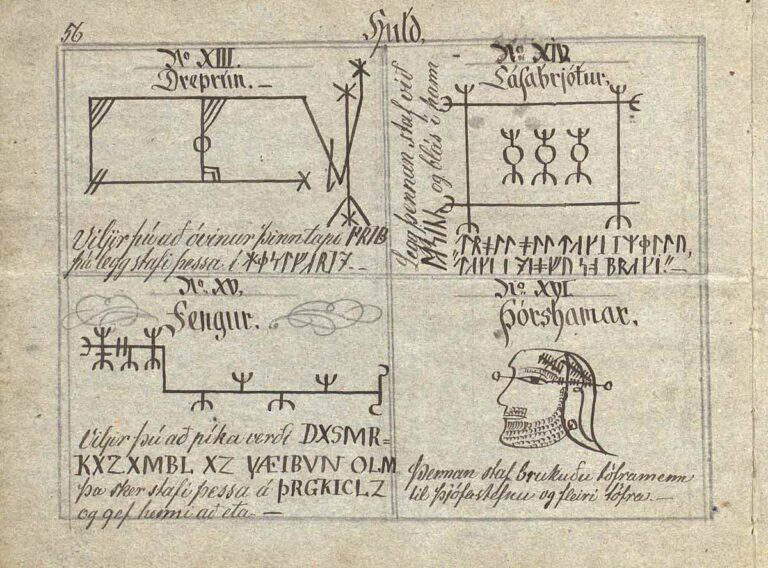 56
Huld.
No XIII.
Dreprún. —
Viljir þú að óvinur þinn tapi
þú legg stafi þessa í
No XIV
Lásabrjótur.
Legg þennan staf við
og blás í hann
No XV.
Fengur.
Viljir þú að píka verði DXSMR=
KXZ XMBL XZ YÆIBVN OLM
þa sker stafi þessa á ÞRGKICLZ
og gef henni að eta. —
No XVI
Þórshamar.
Þennan staf brukuðu töframenn
til þjófastefnu og fleiri töfra. —